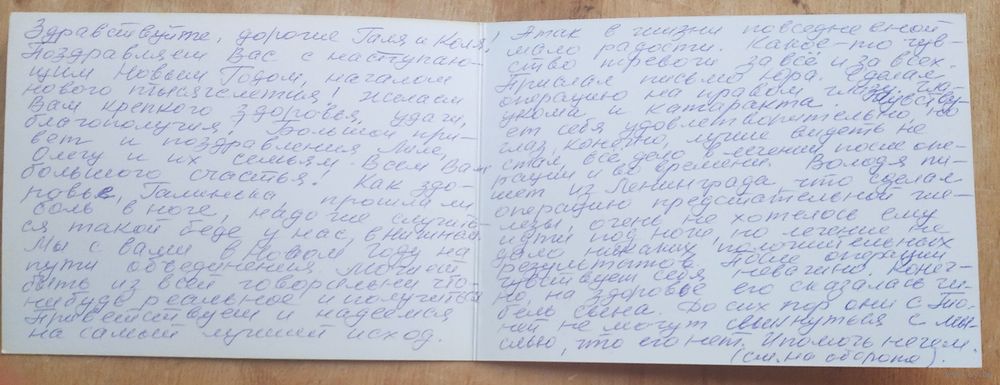 Здравствуйте, дорогие Галя и Коля!
Поздравляем Вас с наступаю-
щим Новым Годом, началом
нового тысячелетия! Желаем
Вам крепкого здоровья, удачи,
благополучия! Большой при-
вет и поздравления Лиле,
Олегу и их семьям. Всем Вам
большого счастья! Как здо-
ровье, Галинька, прошла ли
боль в ноге, надо же случить-
ся такой беде у нас, в
Мы с вами в Новом году на
пути объединения. Может
быть из всей говорильни что-
нибудь реальное и получиться
Приветствуем и надеемся
на самый лучший исход.
А так в жизни повседневной
мало радости. Какое-то чув-
ство тревоги за все и за всех.
Прислал письмо Юра. Сделал
операцию на правом глазу, гла-
укома и катаракта. Чувству-
ет себя удовлетворительно, но
глаз, конечно, лучше видеть не
стал, все дело в лечении после опе-
рации и во времени. Володя пи-
шет из Ленинграда, что сделал
операцию предстательной же-
лезы, очень не хотелось ему
идти под нож, но лечение не
дало никаких положительных
результатов. После операции
чувствует себя неважно. Конеч-
но, на здоровье его сказалась ги-
бель сына. До сих пор они с То-
ней не могут свыкнуться с мы-
слью, что его нет. И помочь нечем.
(см. на обороте).